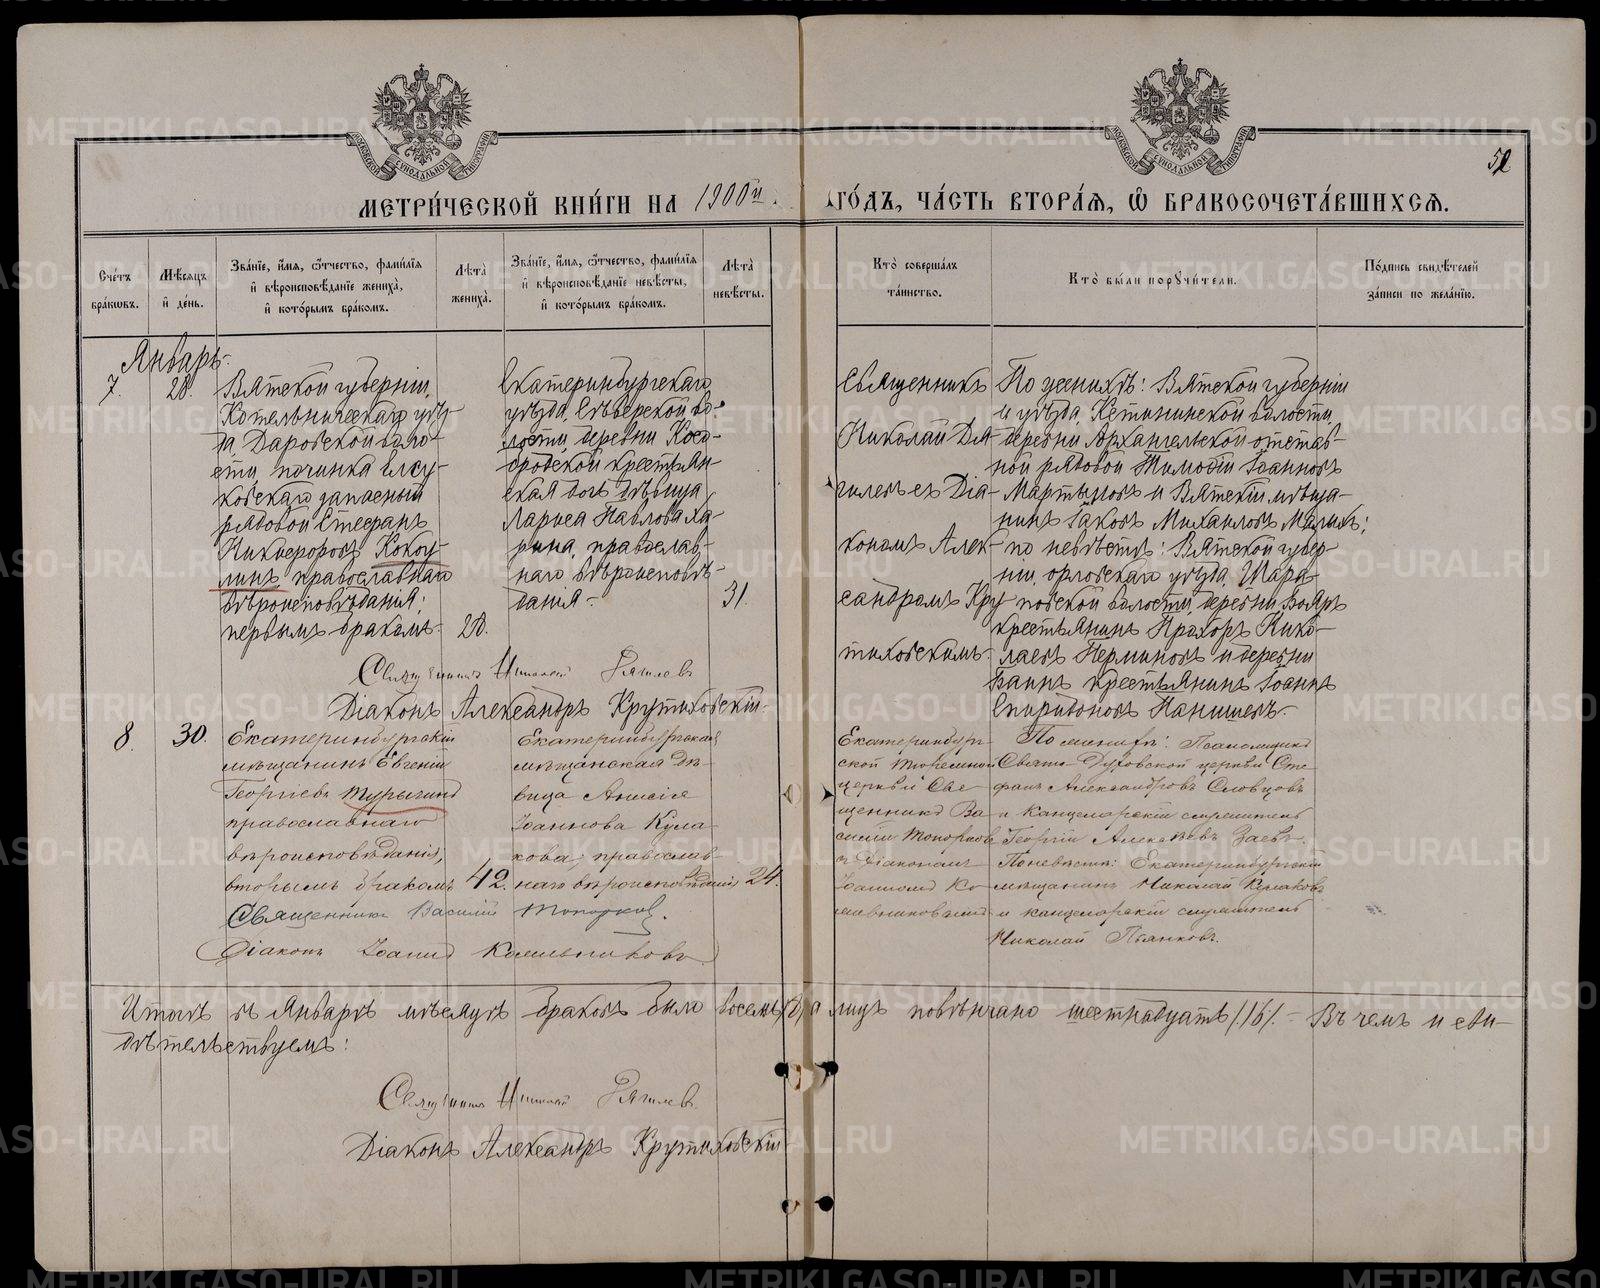 52
МЕТРИ́ЧЕСКОЙ КНИ́ГИ НА 1900й ГО́ДЪ, ЧА́СТЬ ВТОРА́Я, Ѽ БРАКОСОЧЕТА́ВШИХСЯ.
Сче́тъ бра́ковъ.
Мѣ́сяцъ и҆ де́нь.
Зва́нїе, и҆́мя, ѻ҆́тчество, фами́лїя
и҆ вѣроисповѣ́данїе жениха̀,
и҆ кото́рымъ бра́комъ.
Лѣта̀ жениха̀.
Зва́нїе, и҆́мя, ѻ҆́тчество, фами́лїя
и҆ вѣроисповѣ́данїе невѣ́сты,
и҆ кото́рымъ бра́комъ.
Лѣта̀ невѣ́сты.
Кто̀ соверша́лъ
та́инство.
Кто̀ бы́ли порꙋчи́тели.
По́дпись свидѣ́телей
за́писи по жела́нїю.
Январь.
7.
28.
Вятской губерніи,
Котельническаго уѣз-
да, Даровской воло-
сти, починка
запасный
рядовой Стефанъ
Никифоровъ Кокоу-
линъ, православнаго
вѣроисповѣданія;
первымъ бракомъ.
28.
Екатеринбургскаго
уѣзда, Сѣверской во-
лости, деревни Косо-
бродской крестьян-
ская дочь дѣвица
Лариса Павлова Ха-
рина, православ-
наго вѣроисповѣ-
данія.
31.
Священникъ
Николай Дя-
гилевъ съ Діа-
кономъ Алек-
сандромъ Кру-
тиховскимъ.
По женихѣ: Вятской губерніи
и уѣзда, Кстининской волости,
деревни Архангельской отстав-
ной рядовой Тимофій Іоанновъ
Мартыновъ и Вятскій мѣща-
нинъ Іаковъ Михаиловъ Малыхъ;
по невѣстѣ: Вятской губер-
ніи, Орловскаго уѣзда, Шара-
повской волости, деревни Бояръ
крестьянинъ Прохоръ Нико-
лаевъ Перминовъ и деревни
крестьянинъ Іоаннъ
Спиридоновъ
Священникъ Николай Дягилевъ
Діаконъ Александръ Крутиховскій.
8.
30.
Екатеринбургскій
мѣщанинъ Евгеній
Георгіевъ Турыгинъ
православнаго
вѣроисповѣданія,
вторымъ бракомъ
42.
Екатеринбургская
мѣщанская дѣ-
вица Анисія
Іоаннова Кула-
кова, православ-
наго вѣроисповѣданія
24.
Екатеринбург-
ской Тюремной
церкви Свя-
щенникъ Ва-
силій Топорковъ
съ Діакономъ
Іоанномъ Ко-
мельниковымъ
По женихѣ: Псаломщикъ
Свято-Духовской церкви Сте-
фанъ Александровъ Словцовъ
и канцелярскій служитель
Георгій Алексѣевъ Заевъ.
По невѣстѣ: Екатеринбургскій
мѣщанинъ Николай Кулаковъ
и канцелярскій служитель
Николай Пьянковъ.
Священникъ Василій Топорковъ.
Діаконъ Іоаннъ Комельниковъ.
Итогъ въ Январѣ мѣсяцѣ браковъ было восемь /8/, а лицъ повѣнчано шестнадцать /16/. Въ чемъ и сви-
дѣтельствуемъ:
Священникъ Николай Дягилевъ.
Діаконъ Александръ Крутиховскій